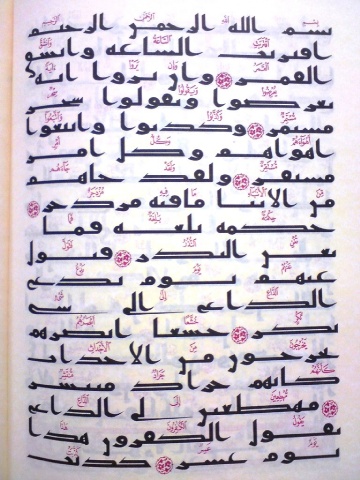 بسم الله الرحمن الرحيم
اقتربت الساعه وانشق
القمر وان يروا ايه
يعرضوا ويقولوا سحر
مستمر وكذبوا واتبعوا
اهواهم وكل امر
مستقر ولقد جاهم
من الانبا ما فيه مزدجر
حكمه بلغه فما
تغن النذر فتول
عنهم يوم يدع
الداع الى شى
نكر خشعا ابصرهم
يخرجون من الاجداث
كانهم جراد منتشر
مهطعين الى الداع
يقول الكفرون هذا
يوم عسر كذبت